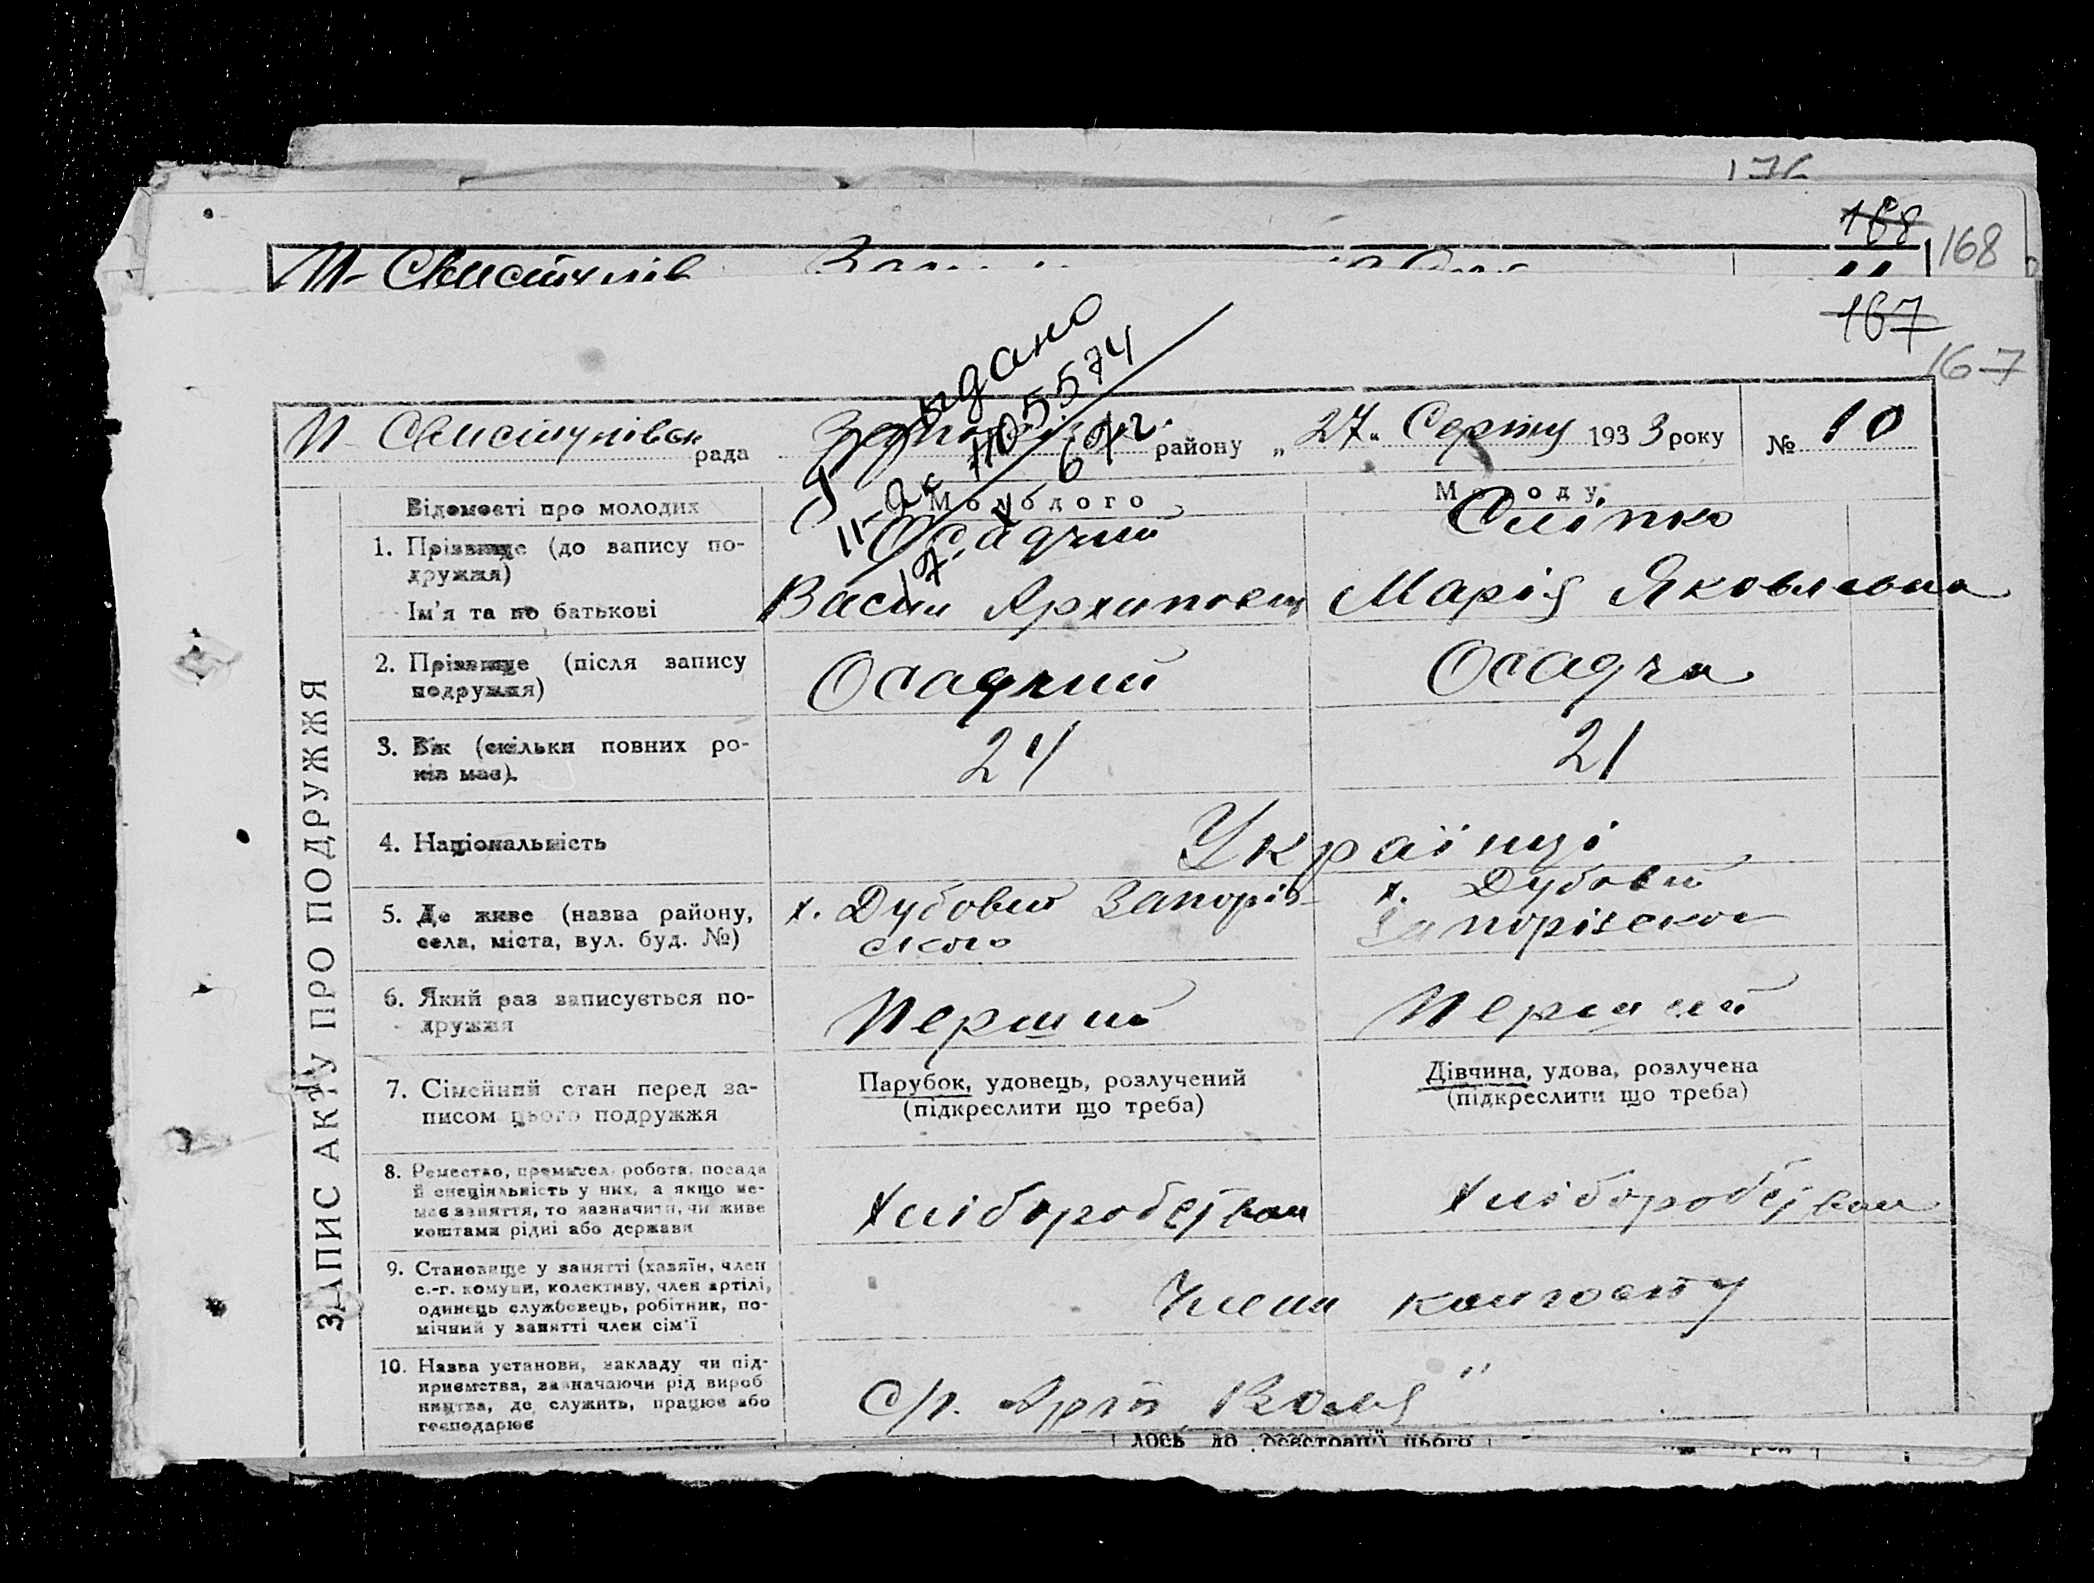 176
168
168
167
167
видано
II-АК 105574
17 X 67г.
П-Свистунівськ рада району „27“ Серпня 1933 року № 10
ЗАПИС АКТУ ПРО ПОДРУЖЖЯ
Відомості про молодих Молодого Молоду
1. Прізвище (до запису по- Осадчий Сліпко
дружжя)
Ім'я та по батькові Васил Архипович Марія Яковлевна
2. Прізвище (після запису Осадчий Осадча
подружжя)
3. Вік (скільки повних ро- 24 21
ків має).
4. Національність Українці
5. Де живе (назва району, х. Дубовий Запорів- х. Дубовий
села, міста, вул. буд. №) ского Запорізского
6. Який раз записується по- Перший Перший
дружжя
7. Сімейний стан перед за- Парубок, удовець, розлучений Дівчина, удова, розлучена
писом цього подружжя (підкреслити що треба) (підкреслити що треба)
8. Ремество, промисел, робота, посада
й спеціяльність у них, а якщо не-
має заняття, то зазначити, чи живе Хліборобство Хліборобство
коштами рідні або держави
9. Становище у занятті (хазяїн, член
с.-г. комуни, колективу, член артілі, Члени колгоспу
одинець службовець, робітник, по-
мічний у занятті член сім'ї
10. Назва установи, закладу чи під-
приємства, зазначаючи рід вироб
ництва, де служить, працює або С/г. Арт. „Воля“
господарює
лось до реєстрації цього